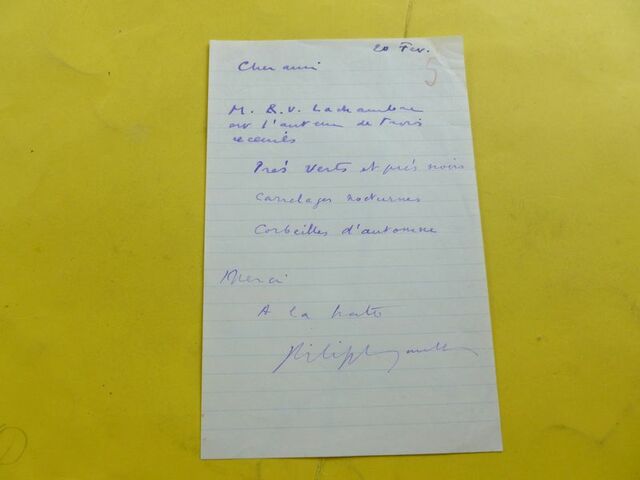 20 Fev.
5
Cher ami
M. R. V. Lachambre
est l'auteur de trois
recueils
Prés verts et prés noirs
Carrelages nocturnes
Corbeilles d'automne
Merci
A la hate